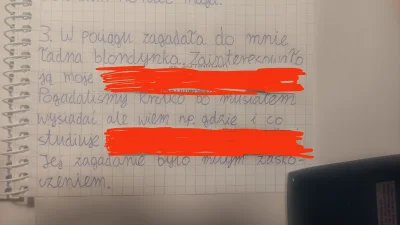 3. W pociągu zagadała do mnie
ładna blondynka. Zainteresowało
ją moje
Pogadaliśmy krótko bo musiałem
wysiadać ale wiem np. gdzie i co
studiuje
Jej zagadanie było miłym zasko-
czeniem.